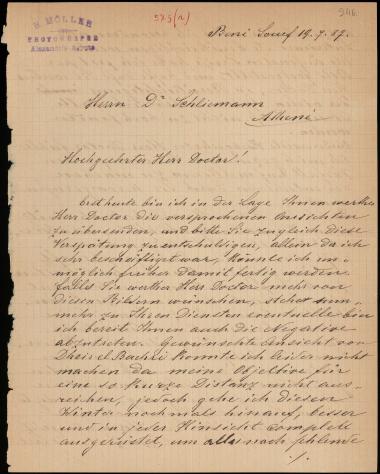 H. MÖLLER
PHOTOGRAPHE
575 (2)
946.
Beni Souef 19. 7. 87.
Herrn Dr Schliemann
Athené
Hochgeehrter Herr Doctor!
Erst heute bin ich in der Lage Ihnen werther
Herr Doctor die versprochenen Ansichten
zu übersenden, und bitte Sie zugleich diese
Verspätung zu entschuldigen, allein da ich
sehr beschäftigt war, konnte ich un-
möglich früher damit fertig werden.
Falls Sie werther Herr Doctor mehr von
diesen Bildern wünschen, stehe
mehr zu Ihren Diensten eventuelle bin
ich bereit Ihnen auch die Negative
abzutreten. Gewünschte Ansicht von
el Bachri konnte ich leider nicht
machen da meine Objective für
eine so kurze Distanz nicht aus-
reichen, jedoch gehe ich diesen
Winter nochmals hinauf, besser
und in jeder Hinsicht complete
ausgerüstet, um alles noch fehlende
./.